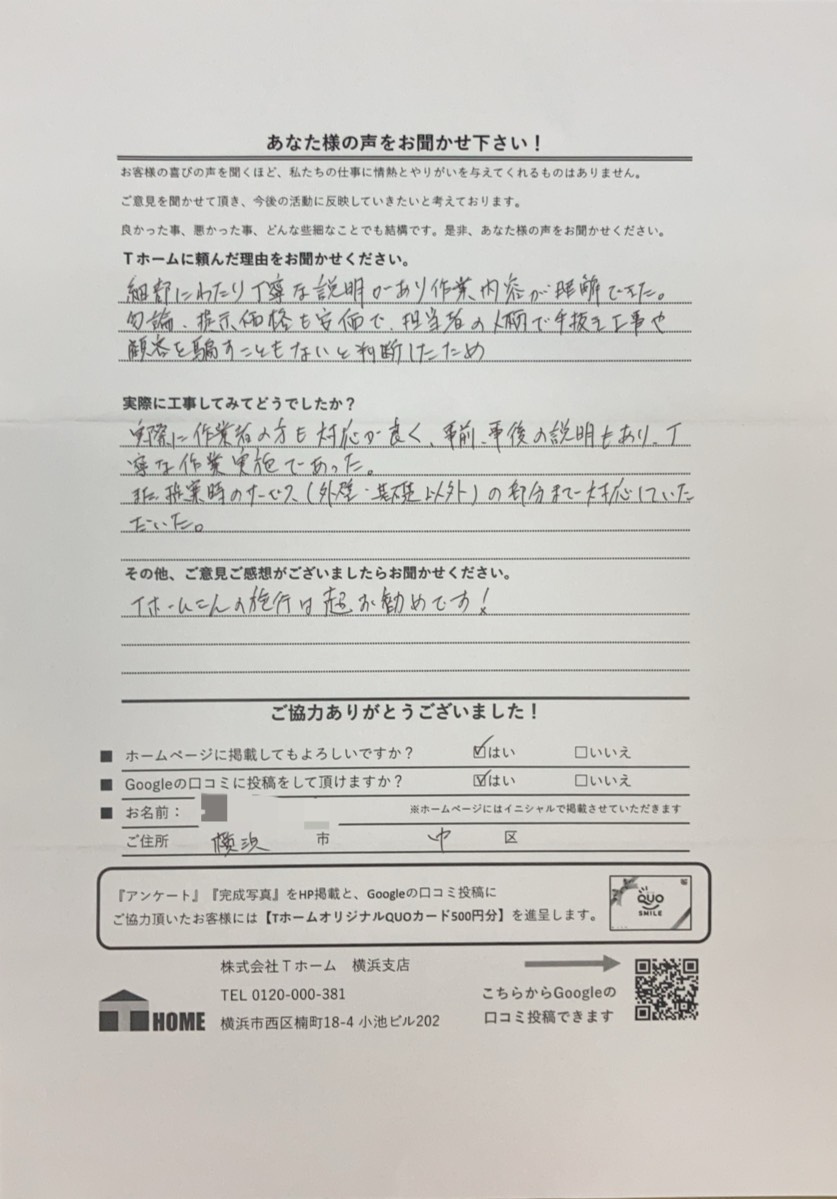 あなた様の声をお聞かせ下さい！
お客様の喜びの声を聞くほど、私たちの仕事に情熱とやりがいを与えてくれるものはありません。
ご意見を聞かせて頂き、今後の活動に反映していきたいと考えております。
良かった事、悪かった事、どんな些細なことでも結構です。是非、あなた様の声をお聞かせください。
Tホームに頼んだ理由をお聞かせください。
細部にわたり丁寧な説明があり作業内容が理解できた。
勿論、提示価格も安価で、担当者の人柄で手抜き工事や
顧客を騙すこともないと判断したため
実際に工事してみてどうでしたか？
実際に作業者の方も対応が良く、事前、事後の説明もあり、丁
寧な作業実施であった。
また提案時のサービス(外壁・基礎以外)の部分まで対応していた
だいた。
その他、ご意見ご感想がございましたらお聞かせください。
Tホームさんの施行は超お勧めです！
ご協力ありがとうございました！
■ ホームページに掲載してもよろしいですか？ ☑はい □いいえ
■ Googleの口コミに投稿をして頂けますか？ ☑はい □いいえ
■ お名前： ※ホームページにはイニシャルで掲載させていただきます
ご住所 横浜 市 中 区
『アンケート』『完成写真』をHP掲載と、Googleの口コミ投稿に
ご協力頂いたお客様には【TホームオリジナルQUOカード500円分】を進呈します。
QUO
SMILE
株式会社Tホーム 横浜支店
TEL 0120-000-381
横浜市西区楠町18-4 小池ビル202
T HOME
こちらからGoogleの
口コミ投稿できます